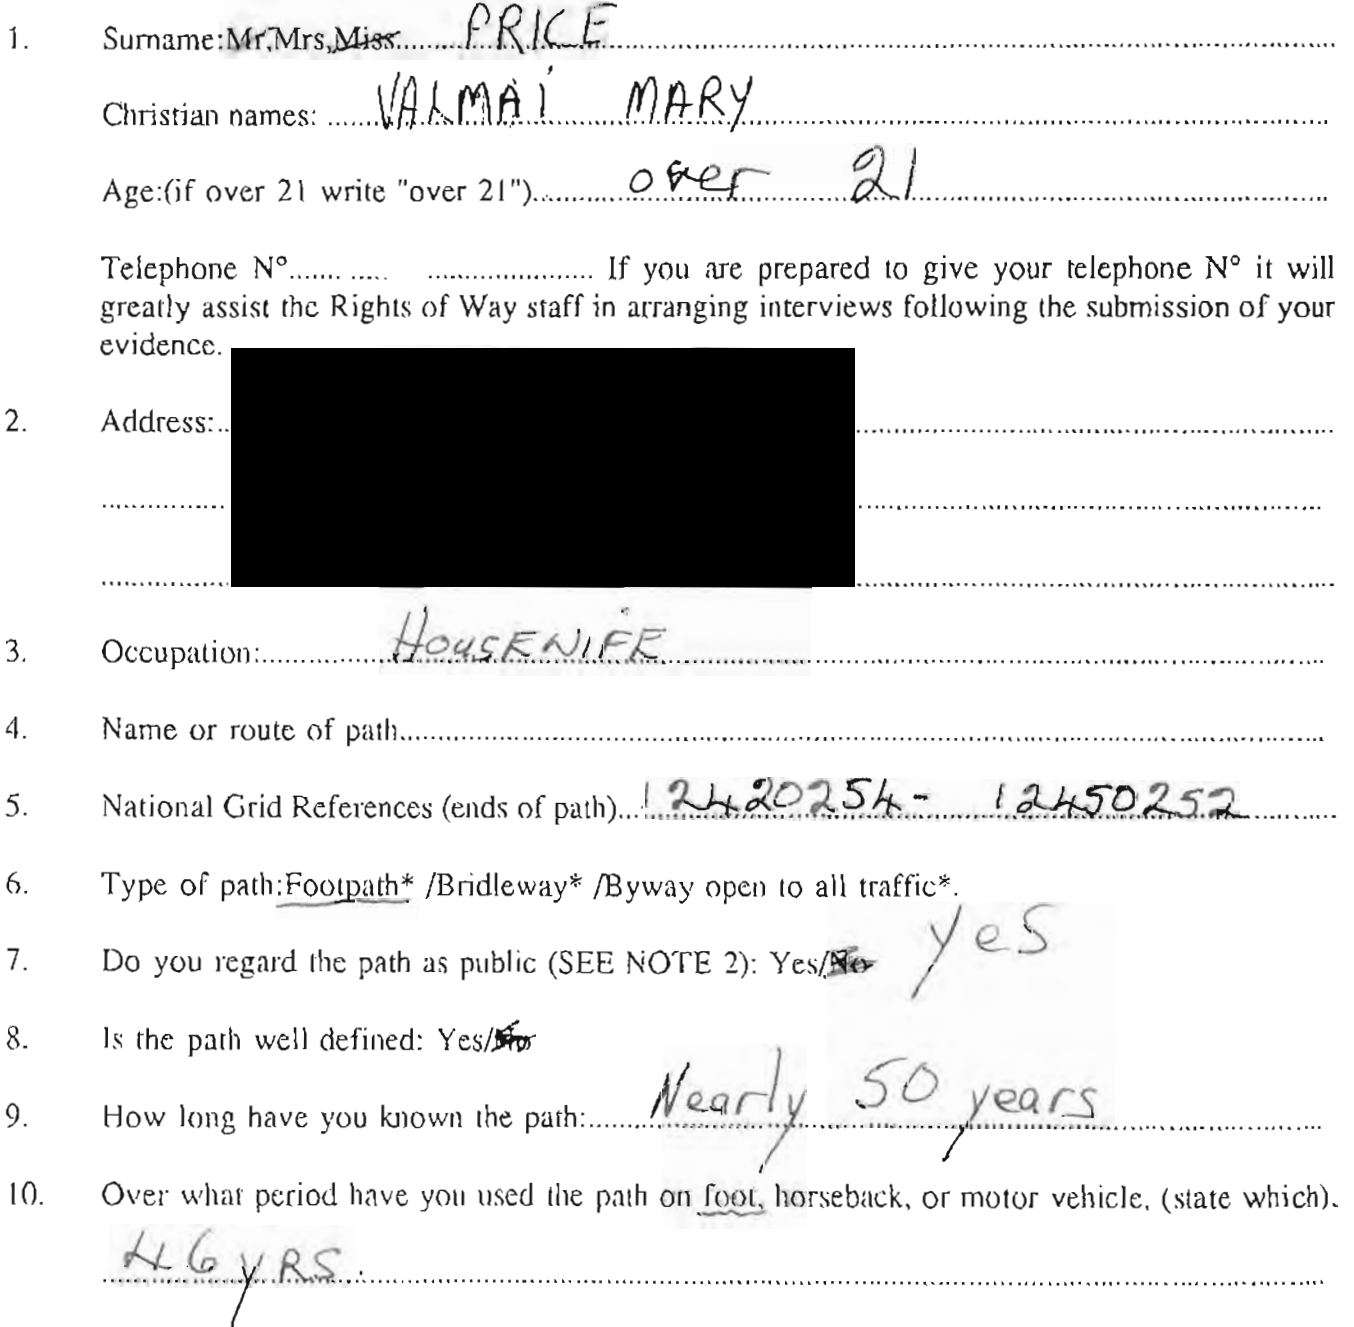 1. Surname:Mr,Mrs,Miss........PRICE
Christian names: ......VALMAI MARY
Age:(if over 21 write "over 21")..........over 21
Telephone N°....... ..... ..................... If you are prepared to give your telephone N° it will
greatly assist the Rights of Way staff in arranging interviews following the submission of your
evidence.
2. Address:..
3. Occupation:..............HOUSEWIFE
4. Name or route of path
5. National Grid References (ends of path)...12420254- 12450252
6. Type of path:Footpath* /Bridleway* /Byway open to all traffic*.
7. Do you regard the path as public (SEE NOTE 2): Yes/No yes
8. Is the path well defined: Yes/No
9. How long have you known the path:........Nearly 50 years
10. Over what period have you used the path on foot, horseback, or motor vehicle, (state which).
46 yRS.